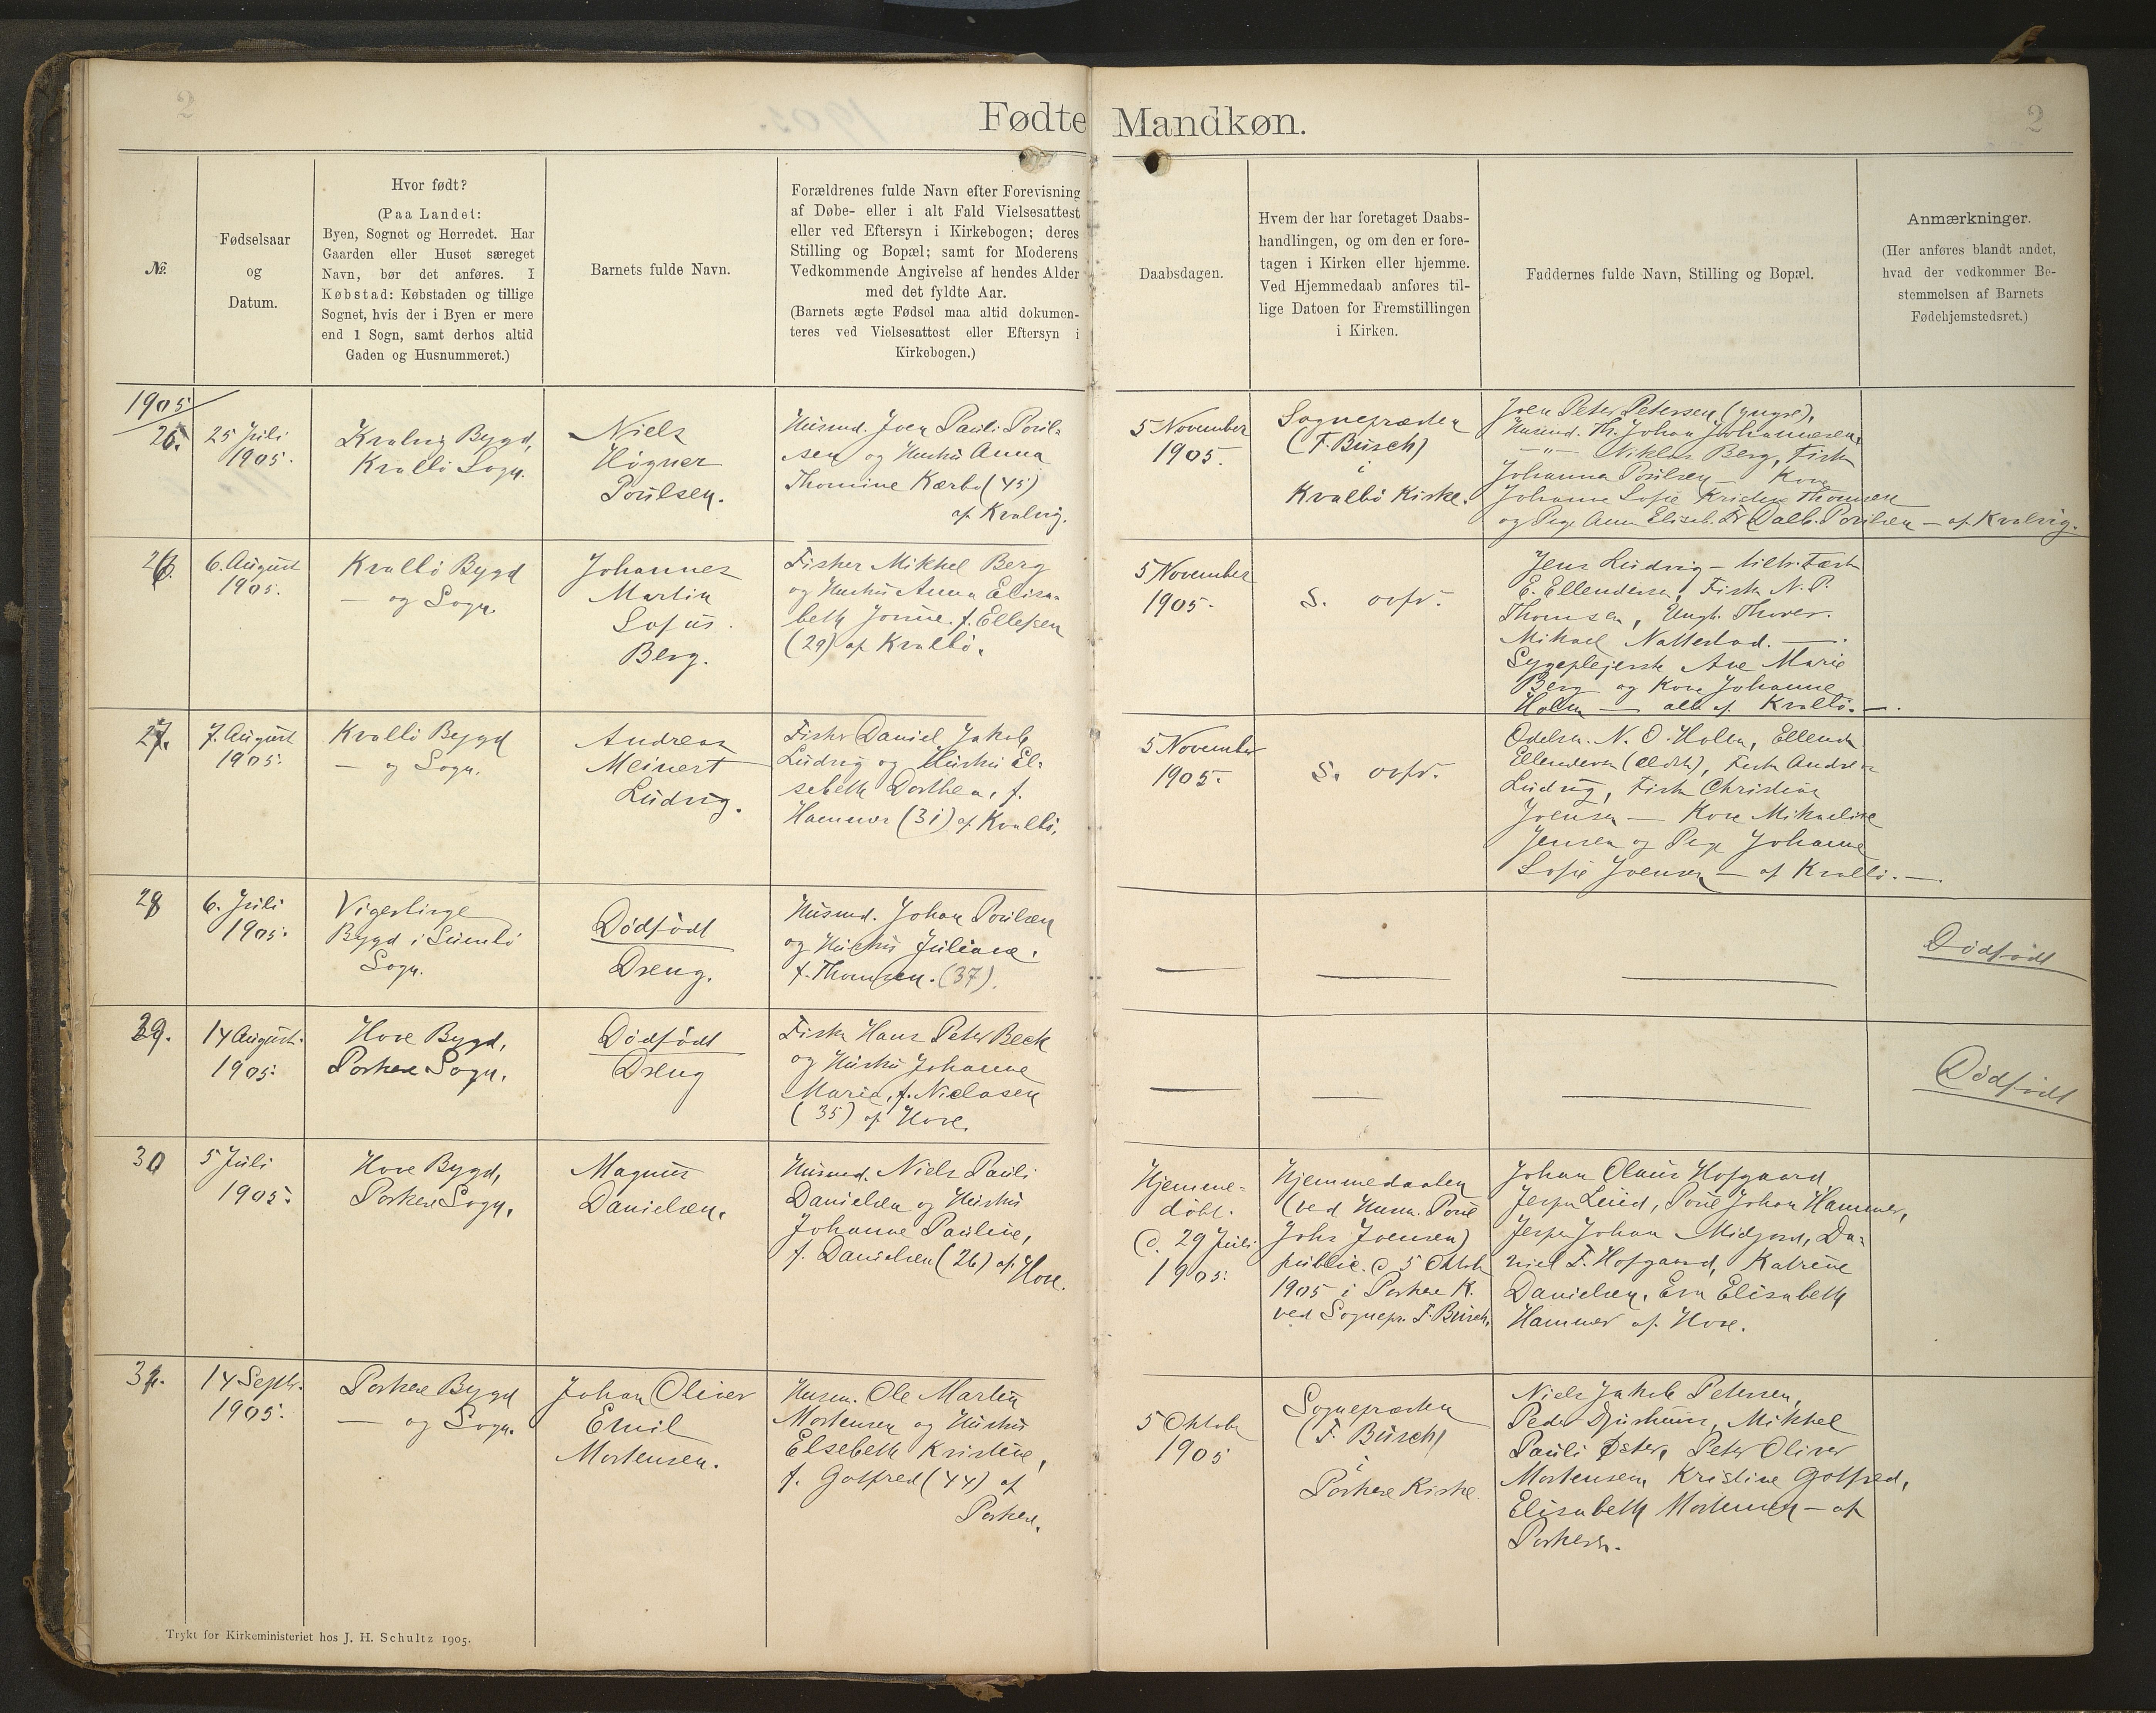 2
Fødte Mandkøn.
2
№.
Fødselsaar
og
Datum.
Hvor født?
(Paa Landet:
Byen, Sognet og Herredet. Har
Gaarden eller Huset særeget
Navn, bør det anføres. I
Købstad: Købstaden og tillige
Sognet, hvis der i Byen er mere
end 1 Sogn, samt derhos altid
Gaden og Husnummeret.)
Barnets fulde Navn.
Forældrenes fulde Navn efter Forevisning
af Døbe- eller i alt Fald Vielsesattest
eller ved Eftersyn i Kirkebogen; deres
Stilling og Bopæl; samt for Moderens
Vedkommende Angivelse af hendes Alder
med det fyldte Aar.
(Barnets ægte Fødsel maa altid dokumen-
teres ved Vielsesattest eller Eftersyn i
Kirkebogen.)
Daabsdagen.
Hvem der har foretaget Daabs-
handlingen, og om den er fore-
tagen i Kirken eller hjemme.
Ved Hjemmedaab anføres til-
lige Datoen for Fremstillingen
i Kirken.
Faddernes fulde Navn, Stilling og Bopæl.
Anmærkninger.
(Her anføres blandt andet,
hvad der vedkommer Be-
stemmelsen af Barnets
Fødehjemstedsret.)
1905
25 Juli
1905.
Kvalvig Bygd,
Kvalbö Sogn.
Niels
Høgner
Poulsen.
Husmd. Joen Pauli Poul-
sen og Hustru Anna
Thomine Kærbo (45)
af Kvalvig.
5 November
1905.
Sognepræsten
(F. Busch)
i
Kvalbö Kirke.
Joen Peter Petersen (yngre),
Husmd. Th. Johan Johannesen,
—"— Niklas Berg, Fisker
Johanna Poulsen — Kone
Johanne Sofie Thomsen
og Pige Anna Elisab. Poulsen — af Kvalvig.
26.
6. August
1905.
Kvalbö Bygd
— og Sogn.
Johannes
Martin
Sofus
Berg.
Fisker Mikkel Berg
og Hustru Anna Elisa-
beth f. Ellefsen
(29) af Kvalbö.
5 November
1905.
S. ovfr.
Jens Ludvig —
E. Ellendersen, Fisker N. P.
Thomsen, Ungk.
Mikael Nattestad. —
Sygeplejerske Ane Marie
Berg og Kone Johanne
Holm — alle af Kvalbö. —
27.
7. August
1905.
Kvalbö Bygd
— og Sogn.
Andreas
Meinert
Ludvig.
Fisker Daniel Jakob
Ludvig og Hustru El-
sebeth Dorthea, f.
Hammer (31) af Kvalbö.
5 November
1905.
S. ovfr.
N. O. Holm, Ellend.
Ellendersen (ældre), Fisker Andreas
Ludvig, Fisker Christian
Joensen — Kone Mikaeline
Jensen og Pige Johanne
Sofie Joensen — af Kvalbö. —
28
6. Juli
1905.
Bygd i Sumbö
Sogn.
Dödfödt
Dreng.
Husmd. Johan Poulsen
og Hustru Juliane,
f. Thomsen. (37).
—
—
—
Dödfödt
29.
14 August.
1905.
Hove Bygd,
Porkere Sogn.
Dödfödt
Dreng
Fisker Hans Peter Beck
og Hustru Johanne
Marie, f. Niclasen
(35) af Hove.
—
—
—
Dödfödt
30
5 Juli
1905.
Hove Bygd,
Porkere Sogn.
Magnus
Danielsen.
Husmd. Niels Pauli
Danielsen og Hustru
Johanne Pauline,
f. Danielsen (26) af Hove.
Hjemme-
döbt.
d. 29 Juli
1905.
Hjemmedaaben
(ved Husm. Poul
Johs Joensen)
public. d 5 Oktob
1905 i Porkere K.
ved Sognepr. F. Busch.
Johan Olaus Hofgaard,
Jesper Lund, Poul Johan Hammer,
Jesper Johan Midjord, Da-
niel F. Hofgaard, Katrine
Danielsen, Eva Elisabeth
Hammer af Hove.
31.
14 Septr.
1905.
Porkere Bygd
— og Sogn.
Johan Oliver
Emil
Mortensen.
Husm. Ole Martin
Mortensen og Hustru
Elsebeth Kristine,
f. Gotfred (44) af
Porkere.
5 Oktober
1905
Sognepræsten
(F. Busch)
i
Porkere Kirke
Niels Jakob Petersen,
Peder Djurhuus, Mikkel
Pauli Øster, Peter Oliver
Mortensen, Kristine Gotfred,
Elisabeth Mortensen — af
Porkere.
Trykt for Kirkeministeriet hos J. H. Schultz 1905.